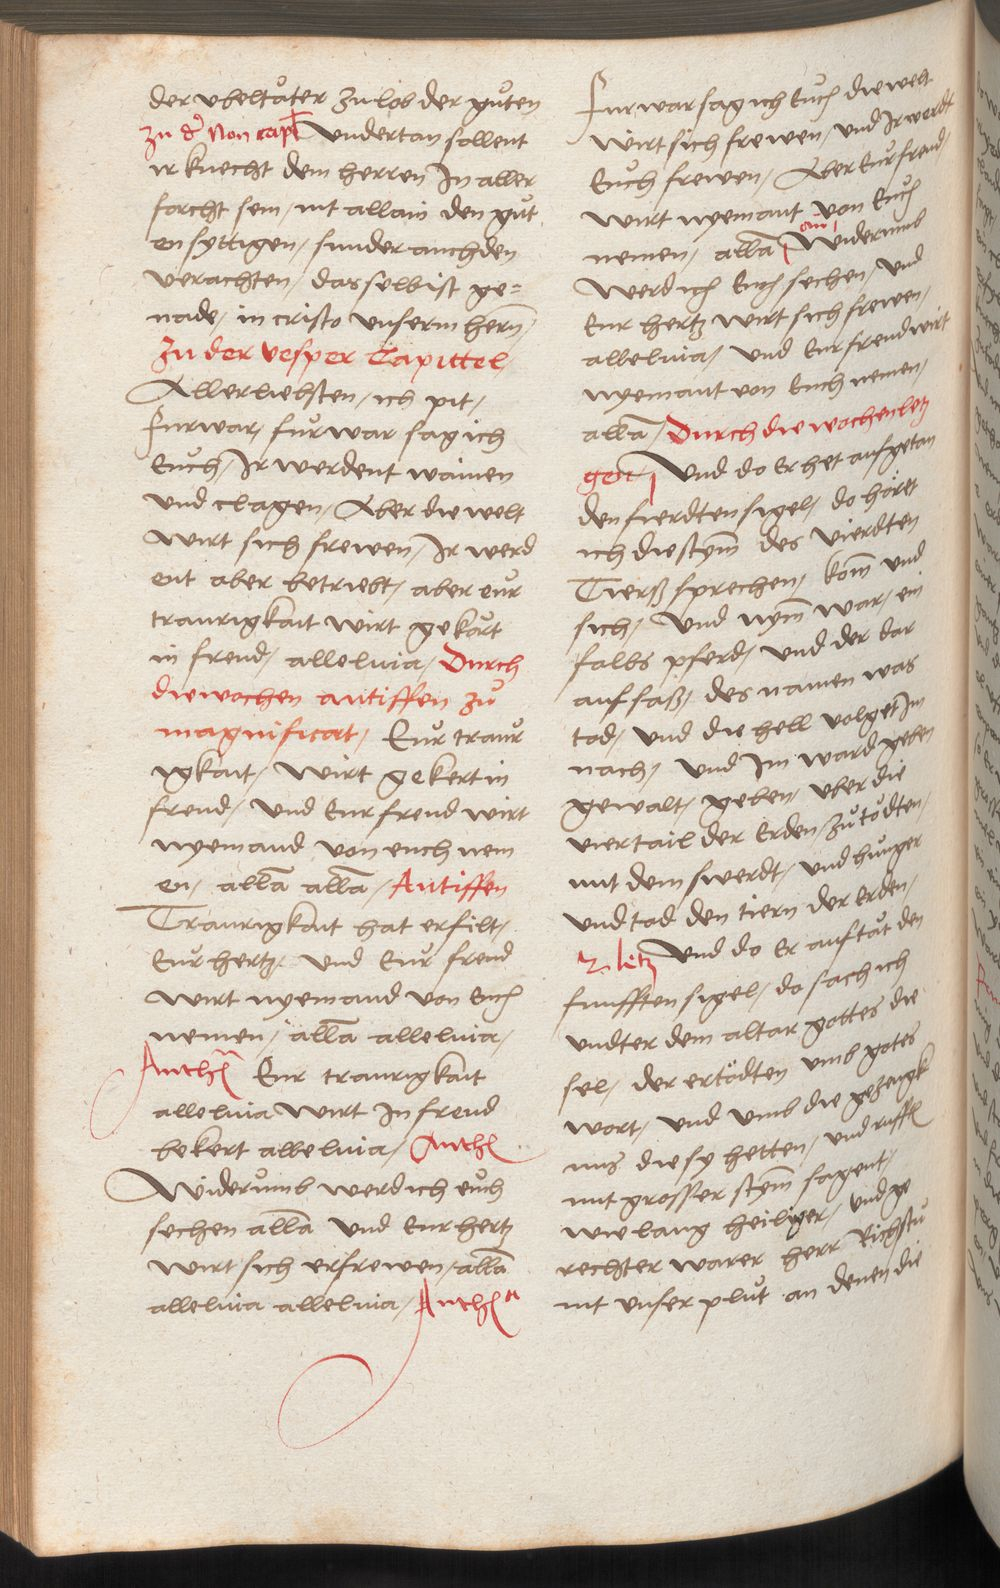 der vbeltåter zu lob der gůten
zu d' Non capl Vndertan sollent
ir knecht dem herren In aller
forcht sein, nit allain den gůt
en syttigen, sunder auch den
verachten, das selb ist ge=
nade, in cristo vnserm hern̄,
Zu der vesper Capittel,
Allerliebsten, ich pit,
furwar, fůrwar sag ich
Eůch, Ir werdent wainen
und clagen, Aber die welt
wirt sich frewen, Ir werd
ent aber betriebt, aber eůr
traurigkait wirt gekårt
in freud, alleluia, Durch
die wochen antiffen zů
magnificat, Eůr traur
igkait, wirt gekert in
freud, und Eur freud wirt
nyemand von euch nem
en, all̄a all̄a, Antiffen
Traurigkait hat erfilt,
Eůr hertz, und Eůr freud
wirt nyemand von Eůch
nemen, all̄a alleluia,
Anthꝭ a Eur traurigkait
alleluia wirt In freud
bekert alleluia, Anthꝭ
Widerůmb werd ich eůch
sechen all̄a und Eur hertz
wirt sich erfrewen, all̄a
alleluia alleluia, Anthꝭ a
furwar sag ich Eůch die welt
wirt sich frewen, und Ir werdt
Eůch frewen, Aber Eůr freud,
wirt nyemant von Eůch
nemen, all̄a ain Widerumb
werd ich Euch sechen, und
Eur hertz wirt sich frewen,
alleluia, und Eur freud wirt
nyemant von Euch nemen,
all̄a, Durch die wochen letz
gen, Und do Er het aufgetan
den fierdten sigel, do höret
ich die stym̄ des vierdten
Tierß sprechen, kom̄ und
sich, Und nym̄ war, ein
falbs pferd, und der dar
auf saß, des namen was
tod, und die hell volget Im
nach, und Im ward geben
gewalt, geben, vber die
viertail der Erden, zů tödten,
mit dem swerdt, und hunger
und tod den tiern der Erden,
2. letz Und do Er auftåt den
funfften sigel, do sach ich
undter dem altar gottes die
sel, der ertödten umb gotes
wort, und umb die gezeugk
nus die sy hetten, und rufftꝭ
mit grosser stym̄ sagent,
wie lang heiliger, und ge
rechter warer herr Richstu
nit vnser plůt an denen die